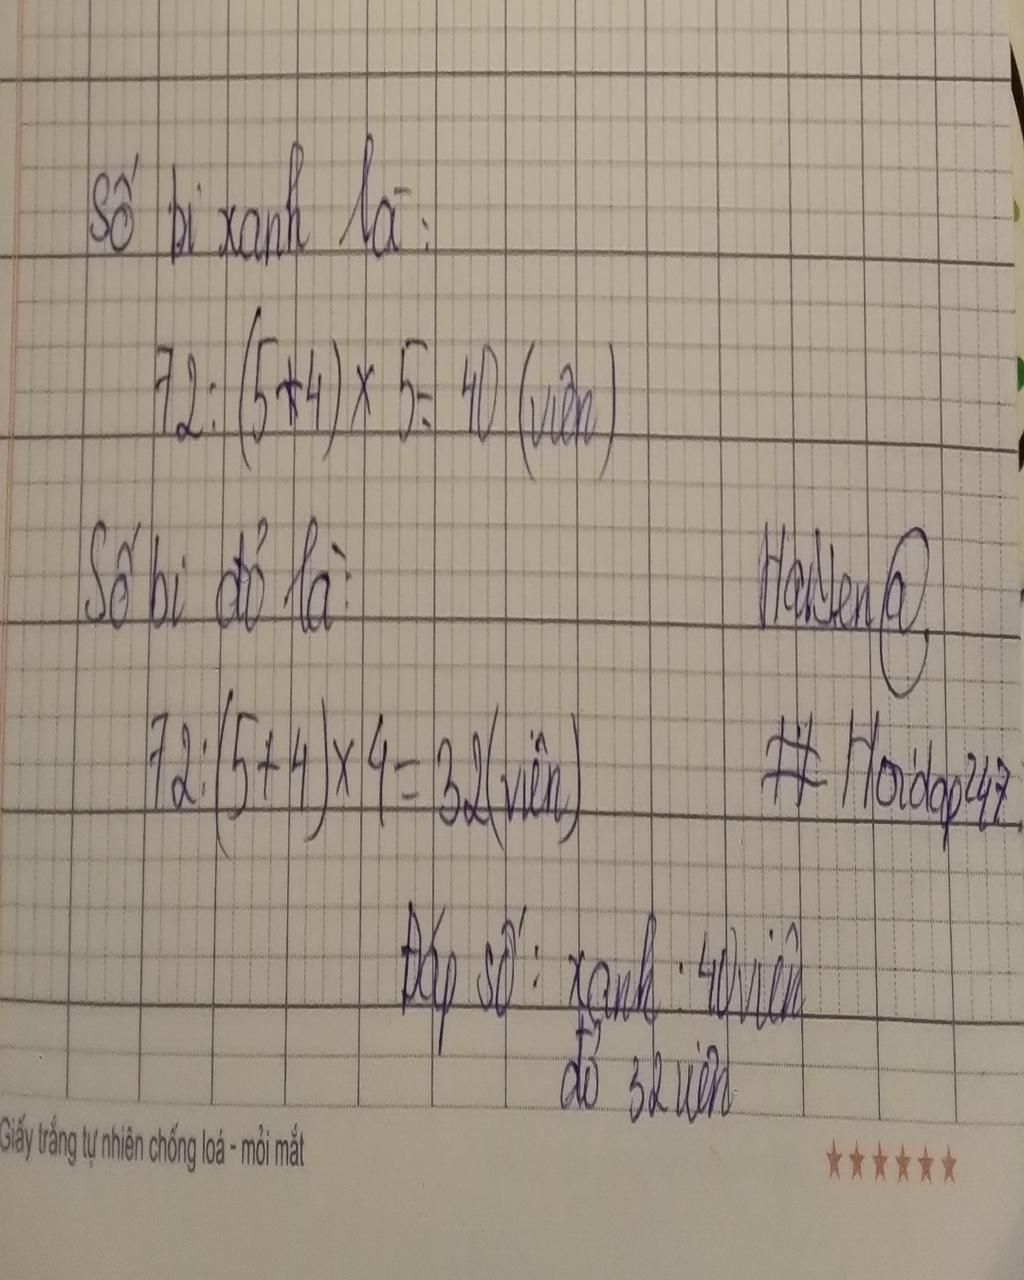 Số bi xanh là:
72: (5+4) x 5= 40 (viên)
Số bi đỏ là:
72: (5+4) x 4 = 32 (viên)
# Hoidap247
Đáp số: xanh: 40 viên
đỏ 32 viên
Giấy trắng tự nhiên chống loá - mỏi mắt